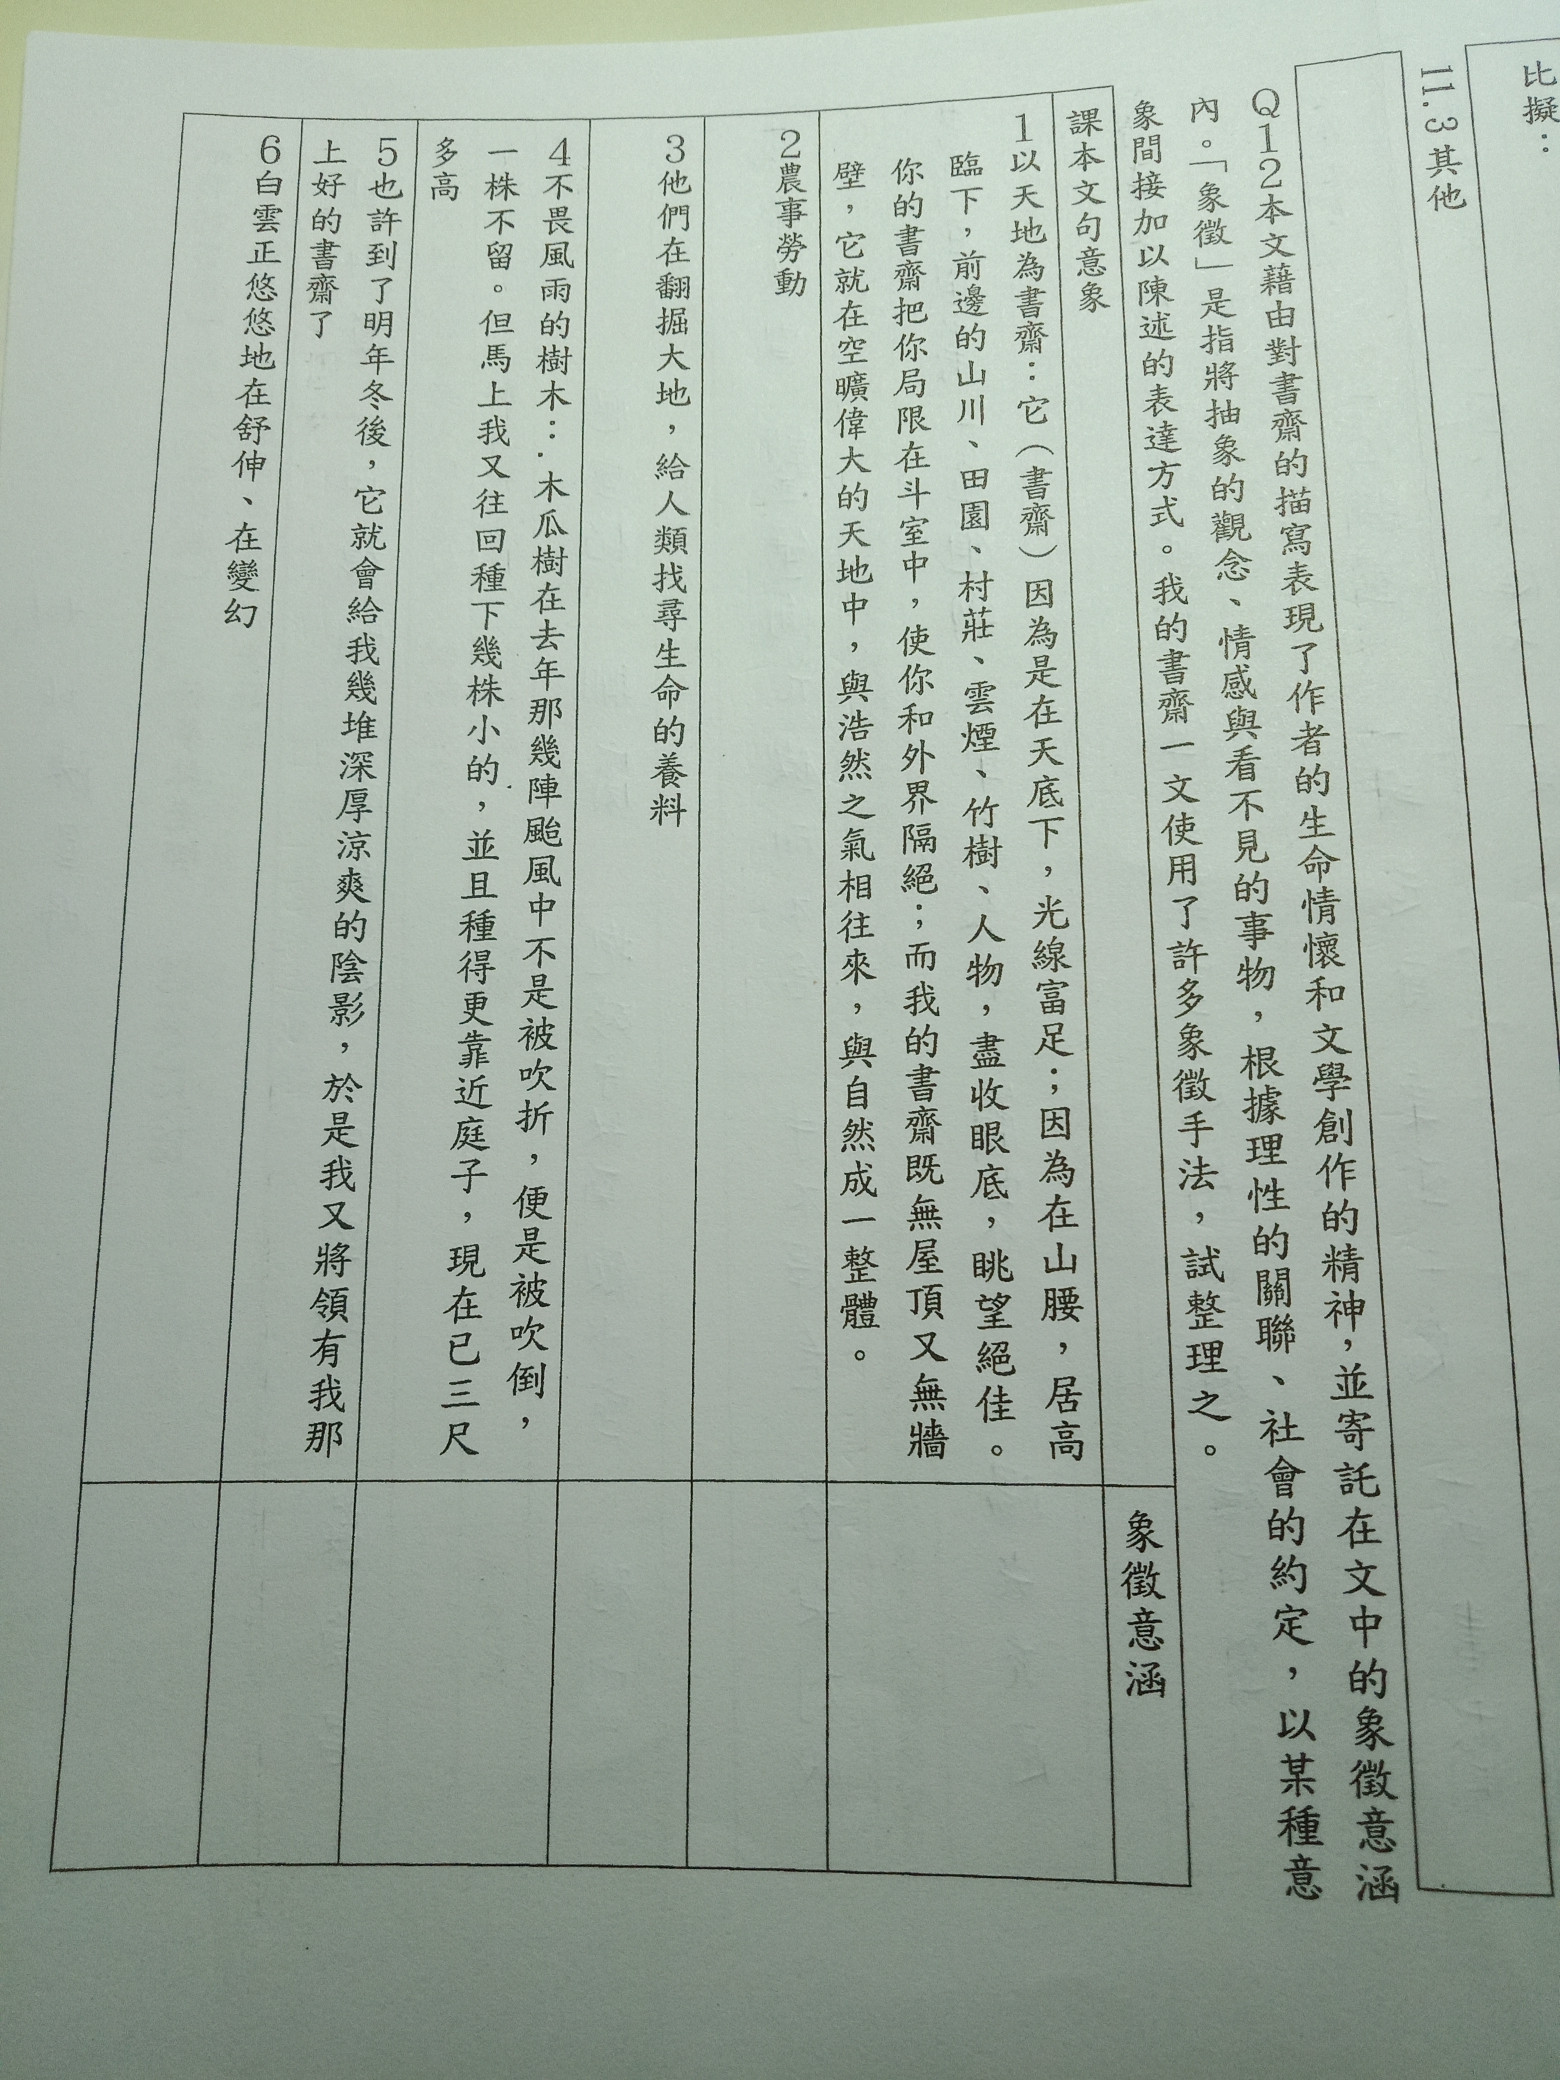 比擬：
11.3其他
Q12本文藉由對書齋的描寫表現了作者的生命情懷和文學創作的精神，並寄託在文中的象徵意涵
內。「象徵」是指將抽象的觀念、情感與看不見的事物，根據理性的關聯、社會的約定，以某種意
象間接加以陳述的表達方式。我的書齋一文使用了許多象徵手法，試整理之。
課本文句意象
象徵意涵
1以天地為書齋：它（書齋）因為是在天底下，光線富足；因為在山腰，居高
臨下，前邊的山川、田園、村莊、雲煙、竹樹、人物，盡收眼底，眺望絕佳。
你的書齋把你局限在斗室中，使你和外界隔絕；而我的書齋既無屋頂又無牆
壁，它就在空曠偉大的天地中，與浩然之氣相往來，與自然成一整體。
2農事勞動
3他們在翻掘大地，給人類找尋生命的養料
4不畏風雨的樹木：木瓜樹在去年那幾陣颱風中不是被吹折，便是被吹倒，
一株不留。但馬上我又往回種下幾株小的，並且種得更靠近庭子，現在已三尺
多高
5也許到了明年冬後，它就會給我幾堆深厚涼爽的陰影，於是我又將領有我那
上好的書齋了
6白雲正悠悠地在舒伸、在變幻